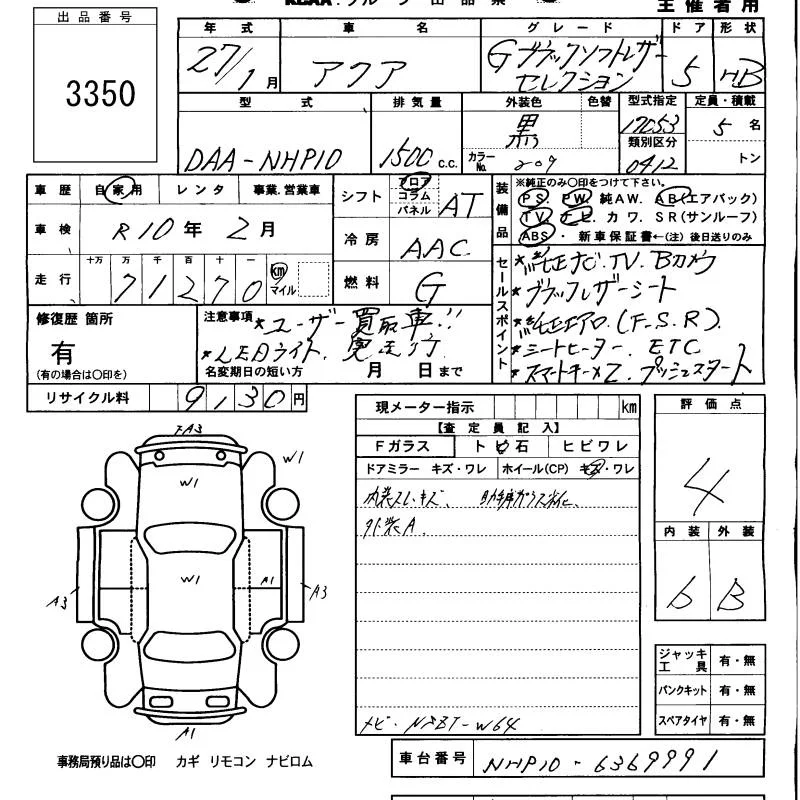 KCAA.
主催者用
出品番号
3350
年式 車名 グレード ドア 形状
27/1月 アクア Gブラックソフトレザーセレクション 5 HB
型式 排気量 外装色 色替 型式指定 定員・積載
DAA-NHP10 1500 c.c. 黒 17053 5名
カラーNo. 209 類別区分 0412 トン
車歴 自家用 レンタ 事業.営業車
車検 R10年 2月
走行 十万 万 千 百 十 一
71270 km マイル
シフト フロア コラム パネル AT
冷房 AAC
燃料 G
装備品 ※純正のみ〇印をつけて下さい。
PS. PW. 純AW. AB(エアバック)
TV. ナビ. カワ. SR(サンルーフ)
ABS・ 新車保証書←(注)後日送りのみ
セールスポイント
*純正ナビ.TV.Bカメラ
*ブラックレザーシート
*純正エアロ.(F.S.R).
*シートヒーター. ETC.
*スマートキーX2. プッシュスタート
修復歴 箇所
有
(有の場合は〇印を)
注意事項 *ユーザー買取車!!
*LEDライト. 実走行
名変期日の短い方 月 日まで
リサイクル料 9130円
現メーター指示 km
【査定員記入】
Fガラス トビ石 ヒビワレ
ドアミラー キズ・ワレ ホイール(CP) キズ・ワレ
内装スレ、キズ.
外装A.
ナビ・NSZT-W64
評価点
4
内装 外装
6 B
ジャッキ工具 有・無
パンクキット 有・無
スペアタイヤ 有・無
FA3
W1
W1
W1
A1
A3
A3
A1
事務局預り品は〇印 カギ リモコン ナビロム
車台番号 NHP10-6369991